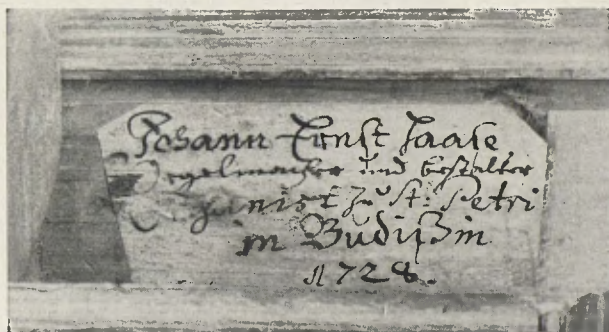 Johann Ernst Haase
Orgelmacher und bestalter
Organist zu St. Petri
in Budißin
1728.